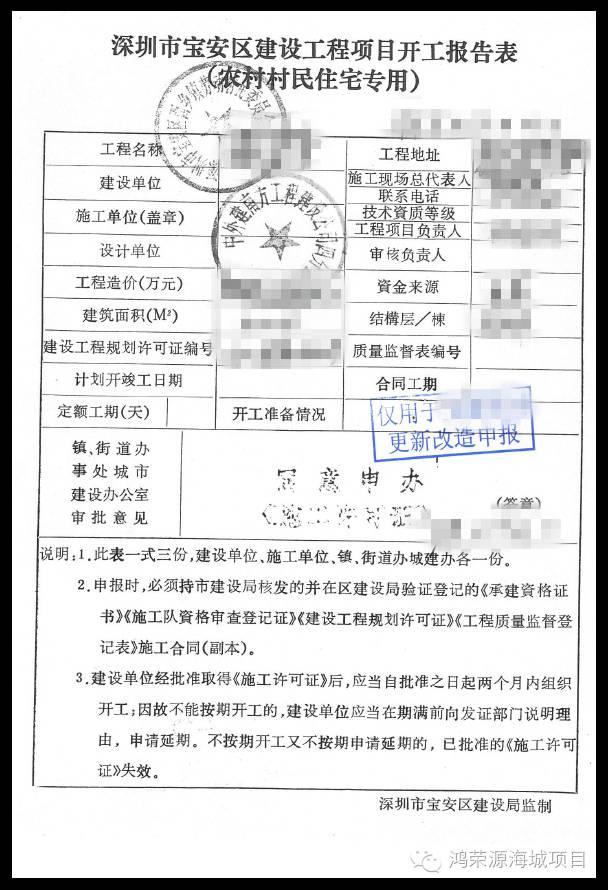 深圳市宝安区建设工程项目开工报告表
(农村村民住宅专用)
工程名称 工程地址
建设单位 施工现场总代表人
联系电话
施工单位(盖章) 技术资质等级
工程项目负责人
设计单位 审核负责人
工程造价(万元) 資金来源
建筑面积(M²) 结構层／栋
建设工程规划许可证编号 质量监督表编号
计划开竣工日期 合同工期
定额工期(天) 开工准备情况
仅用于
更新改造申报
镇、街道办
事处城市
建设办公室
审批意见
同意申办
《施工许可证》
(签章)
说明:1.此表一式三份,建设单位、施工单位、镇、街道办城建办各一份。
2.申报时,必须持市建设局核发的并在区建设局验证登记的《承建資格证
书》《施工队資格审查登记证》《建设工程规划许可证》《工程质量监督登
记表》施工合同(副本)。
3.建设单位经批准取得《施工许可证》后,应当自批准之日起两个月内组织
开工;因故不能按期开工的,建设单位应当在期满前向发证部门说明理
由,申请延期。不按期开工又不按期申请延期的,已批准的《施工许可
证》失效。
深圳市宝安区建设局监制
鸿荣源海城项目